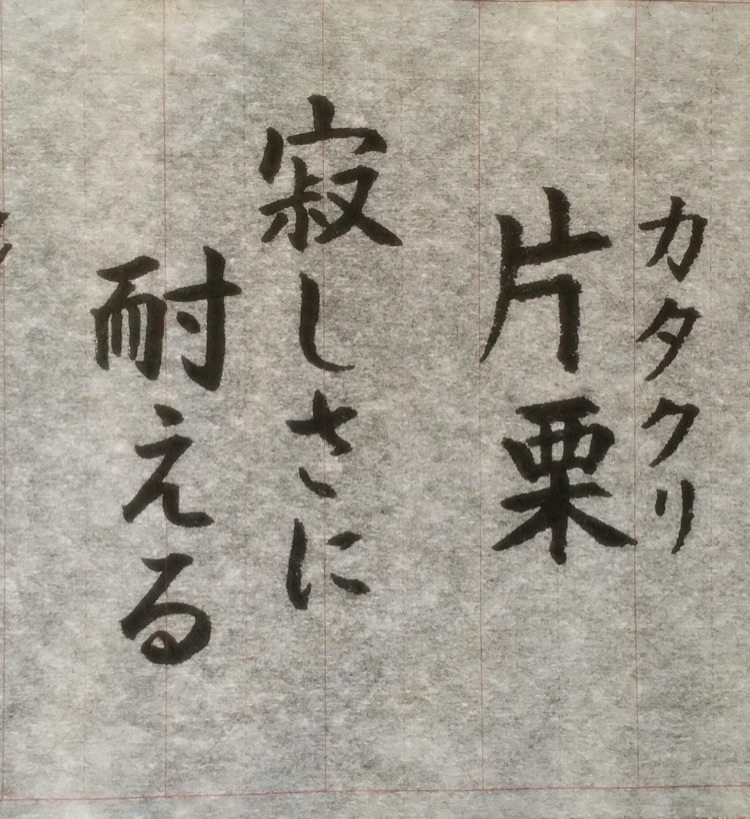 カタクリ
片栗
寂しさに
耐える